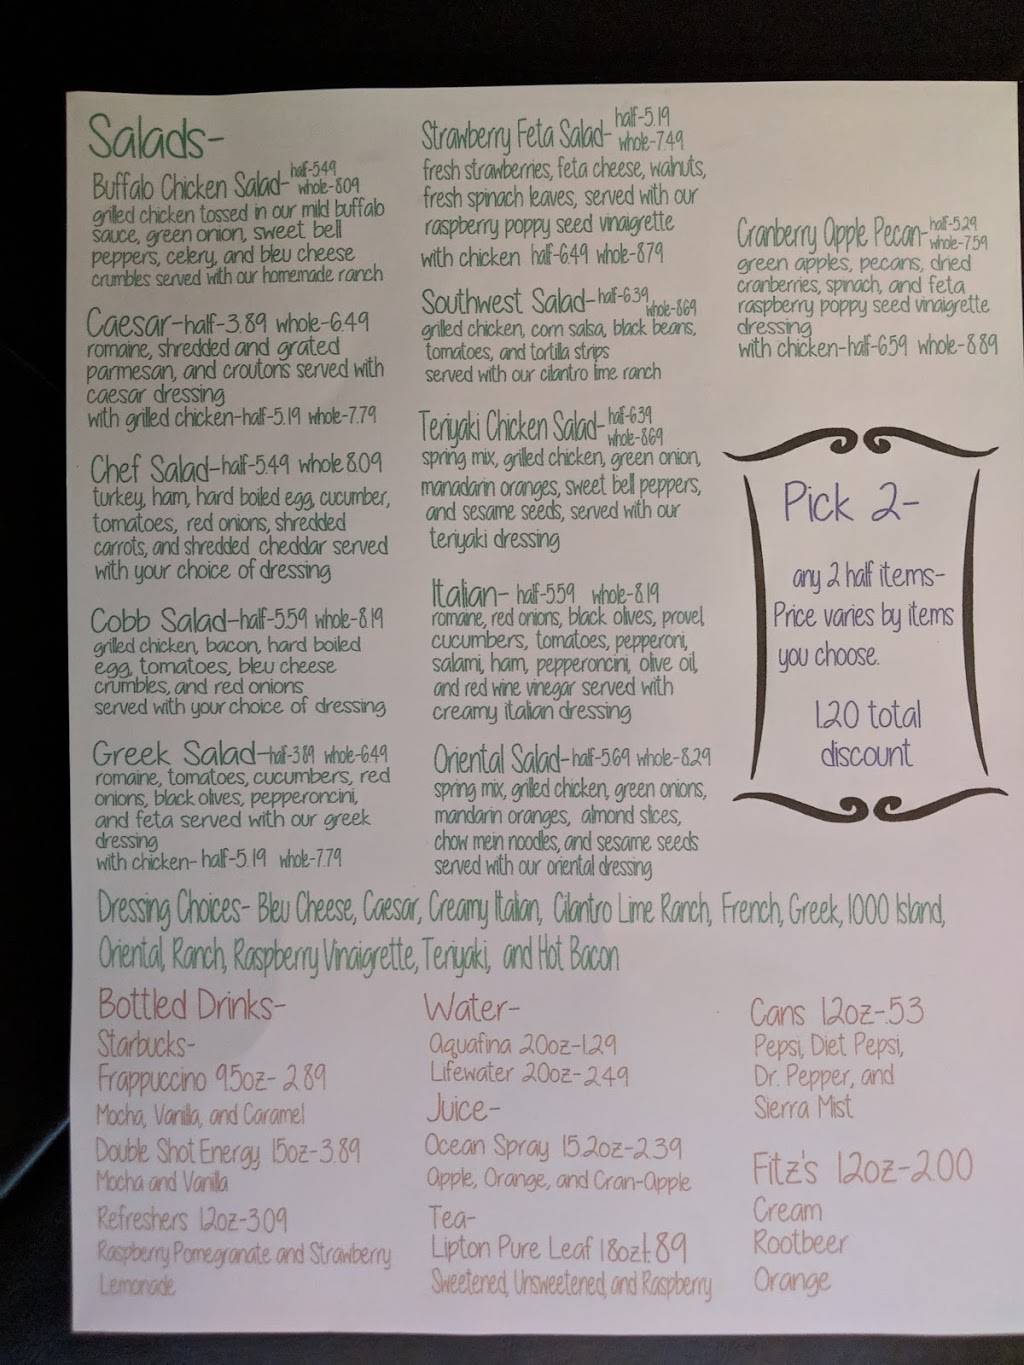 Salads-
Buffalo Chicken Salad- half-5.49
whole-8.09
grilled chicken tossed in our mild buffalo
sauce, green onion, sweet bell
peppers, celery, and bleu cheese
crumbles served with our homemade ranch
Caesar-half-3.89 whole-6.49
romaine, shredded and grated
parmesan, and croutons served with
caesar dressing
with grilled chicken-half-5.19 whole-7.79
Chef Salad-half-5.49 whole 8.09
turkey, ham, hard boiled egg, cucumber,
tomatoes, red onions, shredded
carrots, and shredded cheddar served
with your choice of dressing
Cobb Salad-half-5.59 whole-8.19
grilled chicken, bacon, hard boiled
egg, tomatoes, bleu cheese
crumbles, and red onions
served with your choice of dressing
Greek Salad-half-3.89 whole-6.49
romaine, tomatoes, cucumbers, red
onions, black olives, pepperoncini,
and feta served with our greek
dressing
with chicken- half-5.19 whole-7.79
Strawberry Feta Salad- half-5.19
whole-7.49
fresh strawberries, feta cheese, walnuts,
fresh spinach leaves, served with our
raspberry poppy seed vinaigrette
with chicken half-6.49 whole-8.79
Southwest Salad-half-6.39
whole-8.69
grilled chicken, corn salsa, black beans,
tomatoes, and tortilla strips
served with our cilantro lime ranch
Teriyaki Chicken Salad-half-6.39
whole-8.69
spring mix, grilled chicken, green onion,
manadarin oranges, sweet bell peppers,
and sesame seeds, served with our
teriyaki dressing
Italian- half-5.59 whole-8.19
romaine, red onions, black olives, provel,
cucumbers, tomatoes, pepperoni,
salami, ham, pepperoncini, olive oil,
and red wine vinegar served with
creamy italian dressing
Oriental Salad-half-5.69 whole-8.29
spring mix, grilled chicken, green onions,
mandarin oranges, almond slices,
chow mein noodles, and sesame seeds
served with our oriental dressing
Cranberry Apple Pecan-half-5.29
whole-7.59
green apples, pecans, dried
cranberries, spinach, and feta
raspberry poppy seed vinaigrette
dressing
with chicken-half-6.59 whole-8.89
Pick 2-
any 2 half items-
Price varies by items
you choose.
1.20 total
discount
Dressing Choices- Bleu Cheese, Caesar, Creamy Italian, Cilantro Lime Ranch, French, Greek, 1000 Island,
Oriental, Ranch, Raspberry Vinaigrette, Teriyaki, and Hot Bacon
Bottled Drinks-
Starbucks-
Frappuccino 9.5oz- 2.89
Mocha, Vanilla, and Caramel
Double Shot Energy 15oz-3.89
Mocha and Vanilla
Refreshers 12oz-3.09
Raspberry Pomegranate and Strawberry
Lemonade
Water-
Aquafina 20oz-1.29
Lifewater 20oz-2.49
Juice-
Ocean Spray 15.2oz-2.39
Apple, Orange, and Cran-Apple
Tea-
Lipton Pure Leaf 18oz-1.89
Sweetened, Unsweetened, and Raspberry
Cans 12oz-.53
Pepsi, Diet Pepsi,
Dr. Pepper, and
Sierra Mist
Fitz's 12oz-2.00
Cream
Rootbeer
Orange